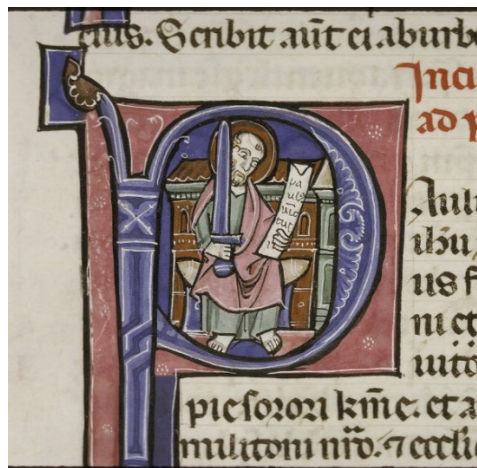 eius. Scribit aūt ei. aburbe
Inci
ad p
Auli
ihu
us f
ni et
pa
pie sorori km̄e. et a
militoni nr̄o. ⁊ eccli